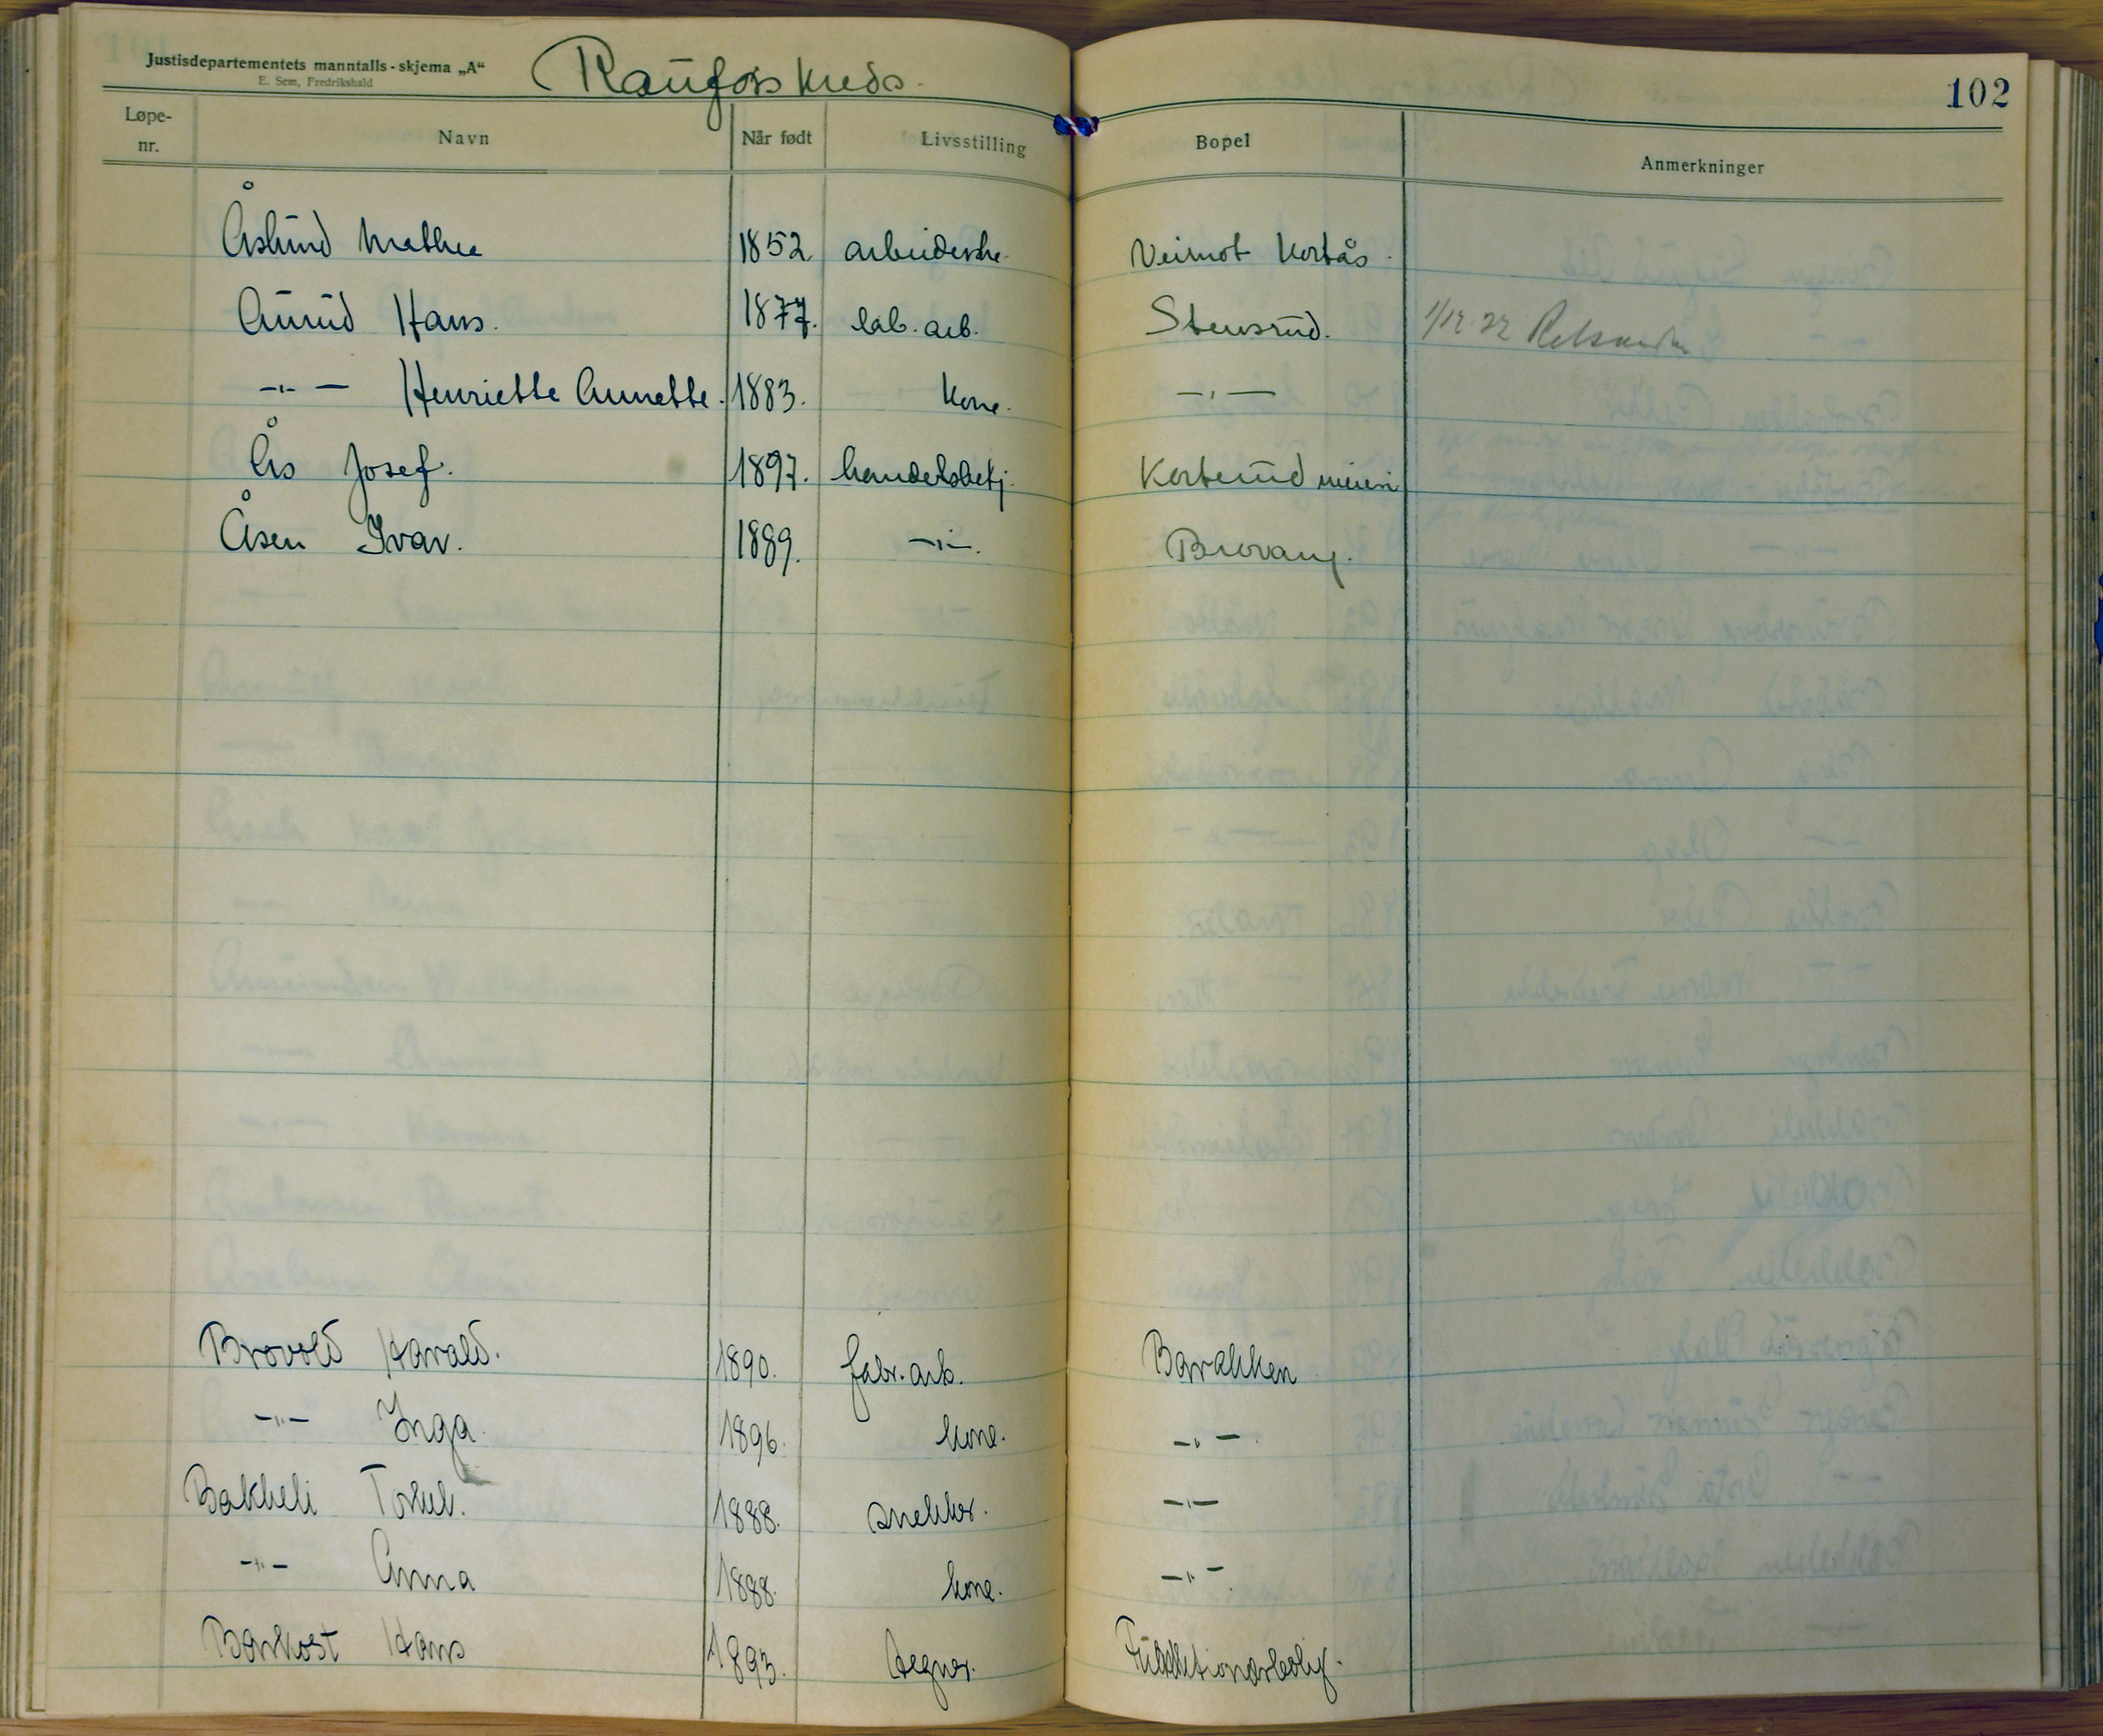 Justisdepartementets manntalls-skjema „A“
E. Sem, Fredrikshald
Raufoss kreds.
102
Løpe-nr. Navn Når født Livsstilling Bopel Anmerkninger
Åslund Mathea 1852 arbeiderske Veimot Kortås.
Aurud Hans. 1877. lab. arb. Stensrud. 1/12 22
-"- Henriette Annette. 1883. Kone. -"-
Ås Josef. 1897. handelsbetj. Korterud meieri
Åsen Ivar. 1889. -"-. Brovang.
Brovold Harald. 1890. fabr. arb. Barakken
-"- Inga. 1896. kone. -"-.
Bakkeli 1888. snekker. -"-
-"- Anna 1888. kone. -"-.
Barkost Hans 1893. tegner. Funktionærbolig.